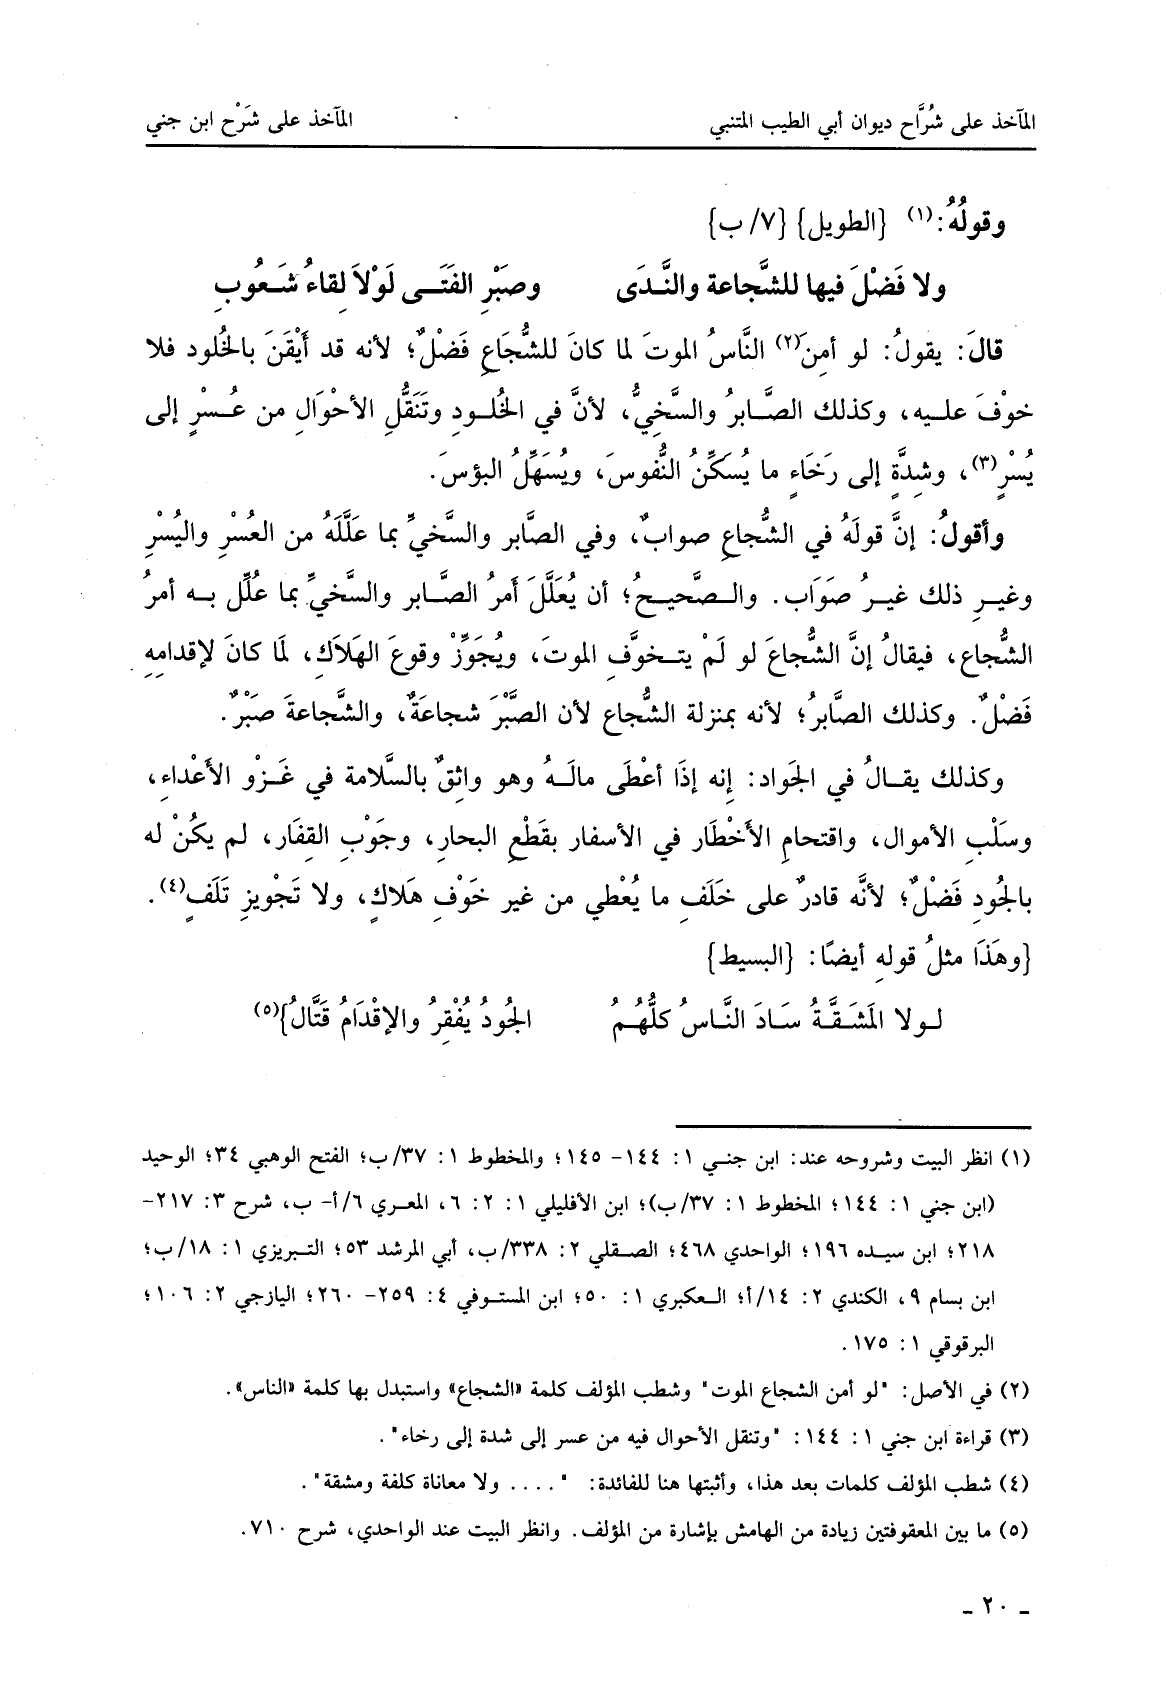 المآخذ على شُرَّاح ديوان أبي الطيب المتنبي المآخذ على شَرْح ابن جني
وقولُهُ:(١) {الطويل} {٧/ ب}
ولا فَضْلَ فيها للشَّجاعة والنَّدَى وصَبْرِ الفَتَى لَوْلاَ لِقاءُ شَعُوبِ
قالَ: يقولُ: لو أمِنَ(٢) النَّاسُ الموتَ لما كانَ للشُّجَاعِ فَضْلٌ؛ لأنه قد أَيْقَنَ بالخُلود فلا
خوْفَ عليه، وكذلك الصَّابرُ والسَّخِيُّ، لأنَّ في الخُلودِ وتَنَقُّلِ الأحْوَالِ من عُسْرٍ إلى
يُسْرٍ(٣)، وشِدَّةٍ إلى رَخَاءٍ ما يُسَكِّنُ النُّفوسَ، ويُسَهِّلُ البؤسَ.
وأقولُ: إنَّ قولَهُ في الشُّجاعِ صوابٌ، وفي الصَّابر والسَّخيِّ بما عَلَّلَهُ من العُسْرِ واليُسْرِ
وغيرِ ذلك غيرُ صَوَاب. والصَّحيحُ؛ أن يُعَلَّلَ أَمرُ الصَّابر والسَّخيِّ بما عُلِّل به أمرُ
الشُّجاع، فيقالُ إنَّ الشُّجاعَ لو لَمْ يتخوَّفِ الموتَ، ويُجَوِّزْ وقوعَ الهَلاَكِ، لَما كانَ لإقدامِهِ
فَضْلٌ. وكذلك الصَّابرُ؛ لأنه بمنزلة الشُّجاع لأن الصَّبْرَ شجاعَةٌ، والشَّجاعةَ صَبْرٌ.
وكذلك يقالُ في الجَواد: إنه إذَا أعْطَى مالَهُ وهو واثِقٌ بالسَّلامة في غَزْو الأَعْداءِ،
وسَلْبِ الأموال، واقتحامِ الأَخْطَار في الأسفار بقَطْعِ البحارِ، وجَوْبِ القِفَار، لم يكُنْ له
بالجُودِ فَضْلٌ؛ لأنَّه قادرٌ على خَلَفِ ما يُعْطي من غير خَوْفِ هَلاكٍ، ولا تَجْويزِ تَلَفٍ(٤).
{وهَذَا مثلُ قولهِ أيضًا: {البسيط}
لولا المَشَقَّةُ سَادَ النَّاسُ كلُّهُمُ الجُودُ يُفْقِرُ والإقْدَامُ قَتَّالُ}(٥)
(١) انظر البيت وشروحه عند: ابن جني ١: ١٤٤- ١٤٥؛ والمخطوط ١: ٣٧/ب؛ الفتح الوهبي ٣٤؛ الوحيد
(ابن جني ١: ١٤٤؛ المخطوط ١: ٣٧/ب)؛ ابن الأفليلي ١: ٢: ٦، المعري ٦/أ- ب، شرح ٣: ٢١٧-
٢١٨؛ ابن سيده ١٩٦؛ الواحدي ٤٦٨؛ الصقلي ٢: ٣٣٨/ب، أبي المرشد ٥٣؛ التبريزي ١: ١٨/ب؛
ابن بسام ٩، الكندي ٢: ١٤/أ؛ العكبري ١: ٥٠؛ ابن المستوفي ٤: ٢٥٩- ٢٦٠؛ اليازجي ٢: ١٠٦؛
البرقوقي ١: ١٧٥.
(٢) في الأصل: "لو أمن الشجاع الموت" وشطب المؤلف كلمة «الشجاع» واستبدل بها كلمة «الناس».
(٣) قراءة ابن جني ١: ١٤٤: "وتنقل الأحوال فيه من عسر إلى شدة إلى رخاء".
(٤) شطب المؤلف كلمات بعد هذا، وأثبتها هنا للفائدة: ".... ولا معاناة كلفة ومشقة".
(٥) ما بين المعقوفتين زيادة من الهامش بإشارة من المؤلف. وانظر البيت عند الواحدي، شرح ٧١٠.
- ٢٠ -